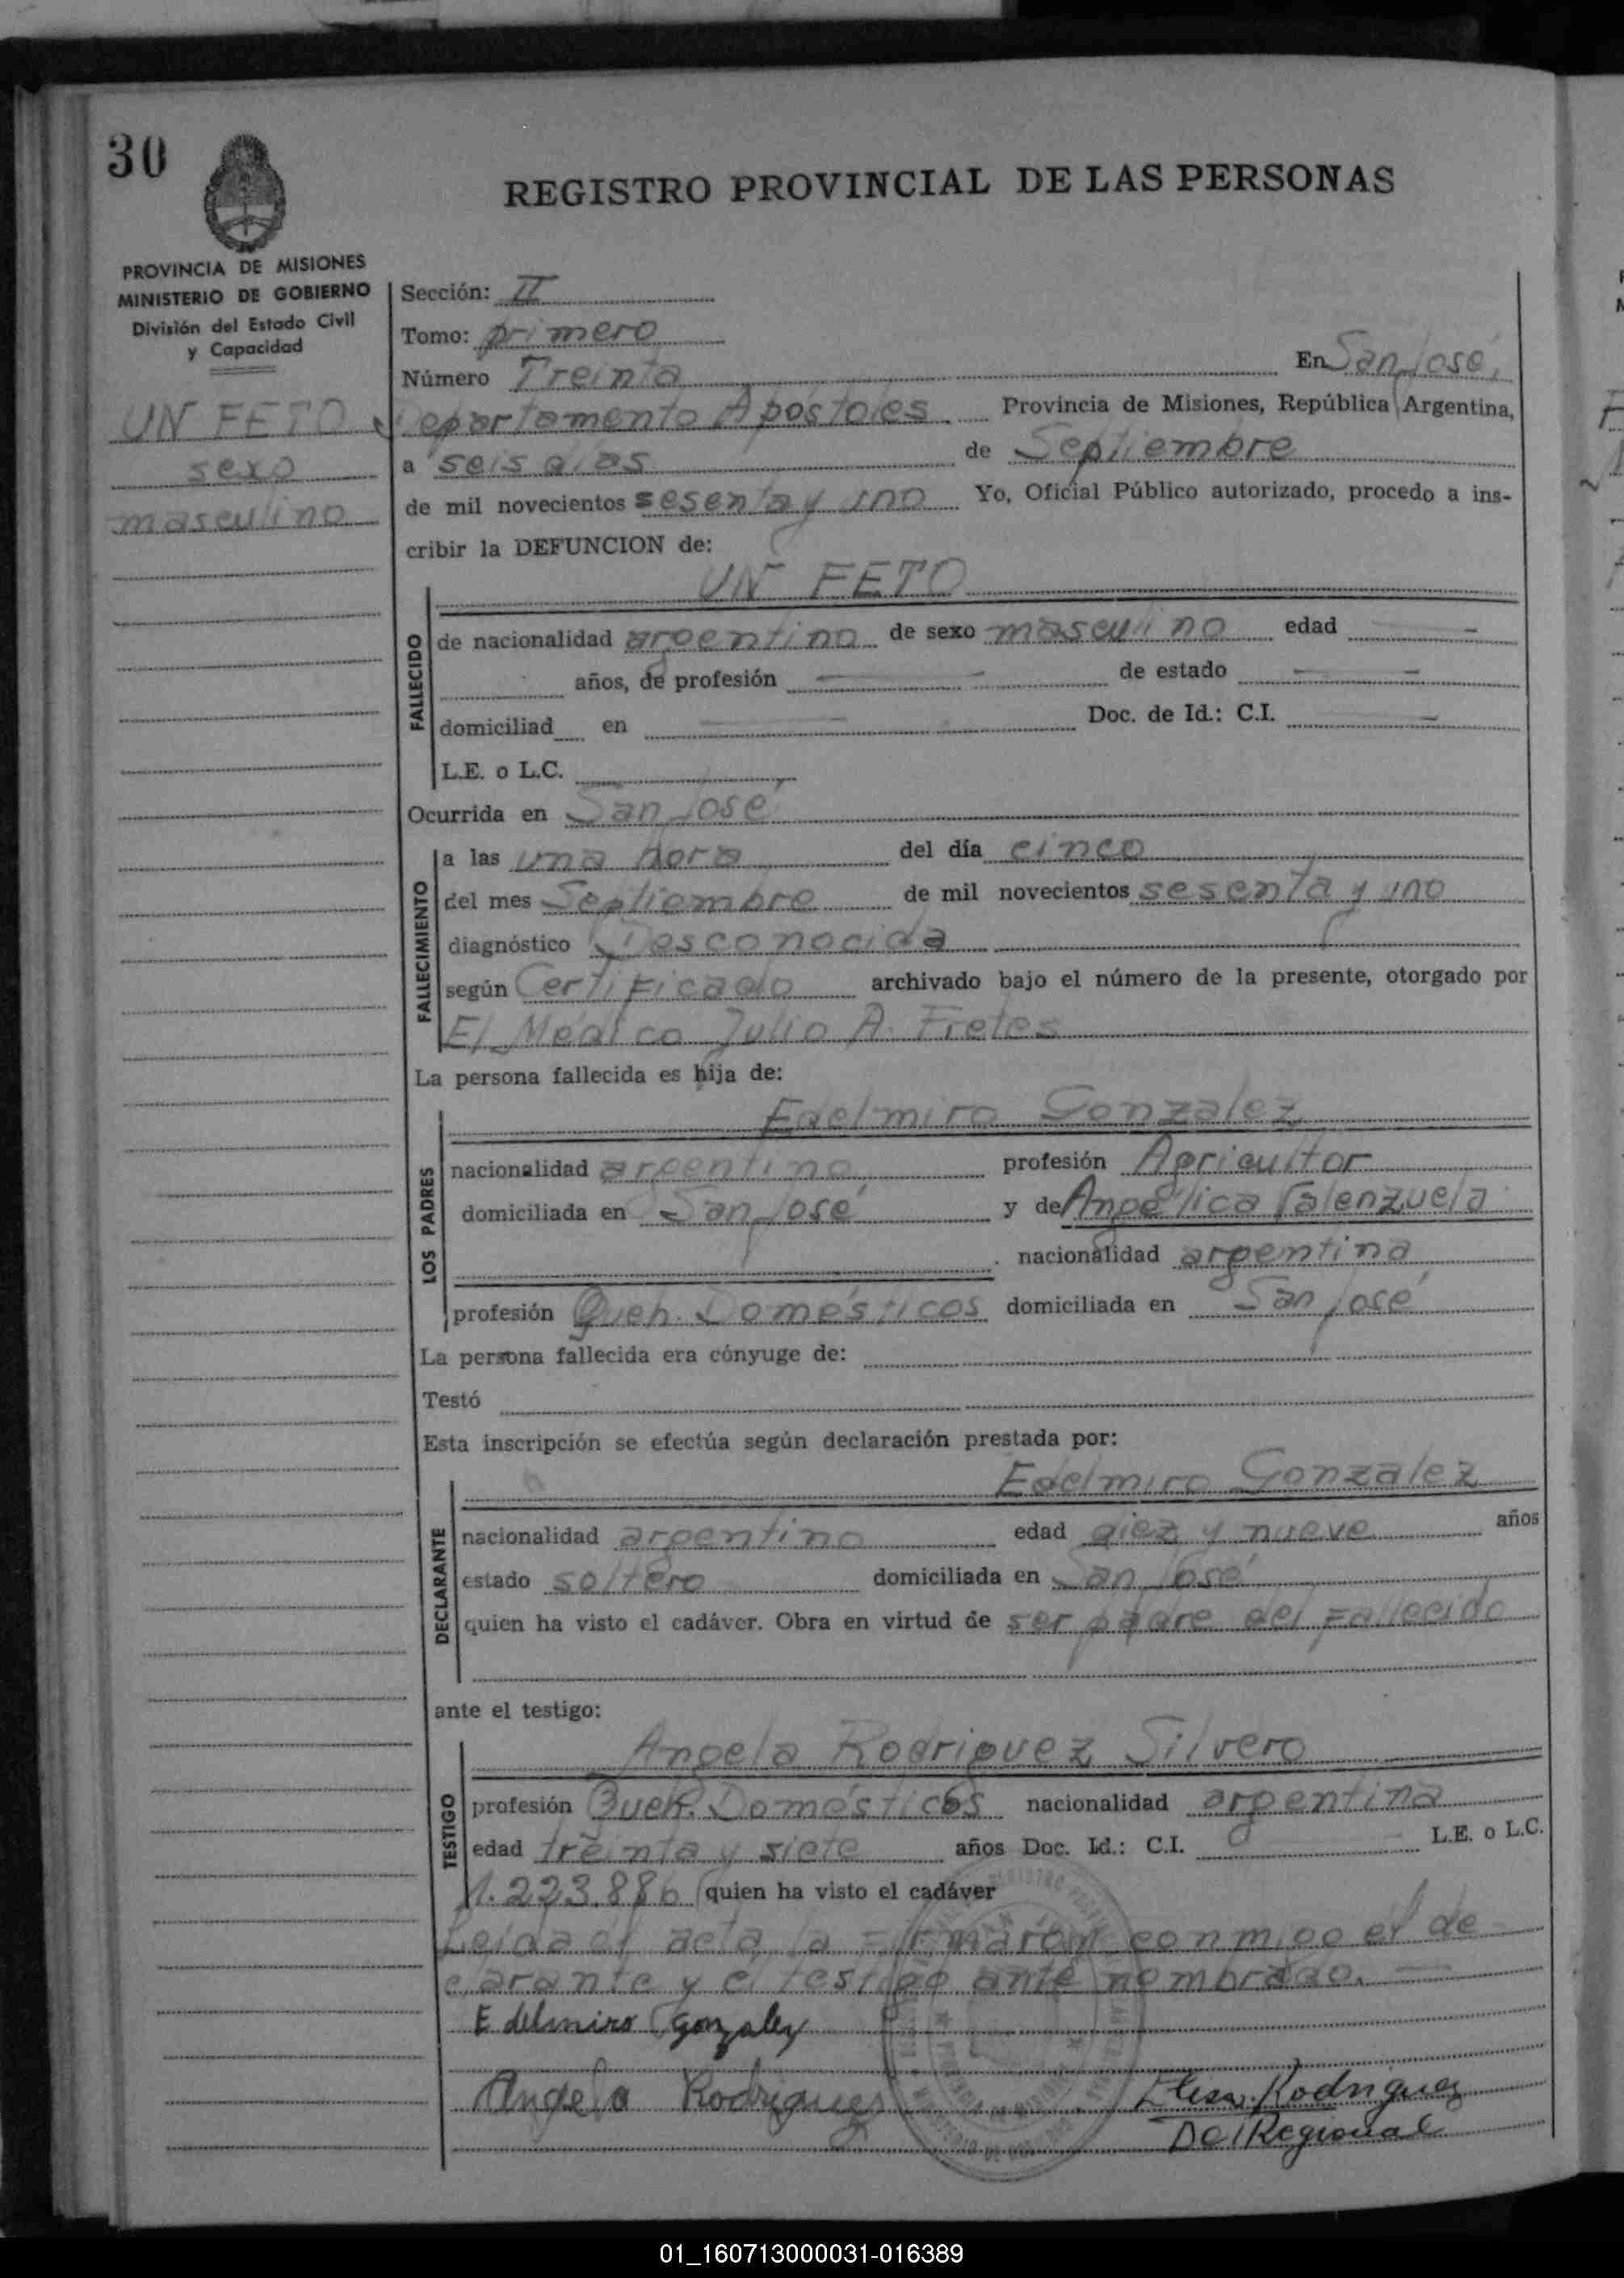 30
REGISTRO PROVINCIAL DE LAS PERSONAS
PROVINCIA DE MISIONES
MINISTERIO DE GOBIERNO
División del Estado Civil
y Capacidad
UN FETO
sexo
masculino
Sección: II
Tomo: primero
Número Treinta En San José,
Departamento Apóstoles Provincia de Misiones, República Argentina,
a seis dias de Septiembre
de mil novecientos sesenta y uno Yo, Oficial Público autorizado, procedo a ins-
cribir la DEFUNCION de:
UN FETO
FALLECIDO
de nacionalidad argentino de sexo masculino edad -
años, de profesión — de estado —
domiciliad en — Doc. de Id.: C.I. —
L.E. o L.C.
Ocurrida en San José
FALLECIMIENTO
a las una hora del día cinco
del mes Septiembre de mil novecientos sesenta y uno
diagnóstico Desconocida
según Certificado archivado bajo el número de la presente, otorgado por
El Médico Julio A. Fretes
La persona fallecida es hija de:
LOS PADRES
Edelmiro Gonzalez
nacionalidad argentino profesión Agricultor
domiciliada en San José y de Angélica Valenzuela
nacionalidad argentina
profesión Queh. Domésticos domiciliada en San José
La persona fallecida era cónyuge de:
Testó
Esta inscripción se efectúa según declaración prestada por:
DECLARANTE
Edelmiro Gonzalez
nacionalidad argentino edad diez y nueve años
estado soltero domiciliada en San José
quien ha visto el cadáver. Obra en virtud de ser padre del fallecido
ante el testigo:
TESTIGO
Angela Rodriguez Silvero
profesión Queh. Domésticos nacionalidad argentina
edad treinta y siete años Doc. Id.: C.I. L.E. o L.C.
1.223.886 quien ha visto el cadáver
Leida el acta la firmarón conmigo el de-
clarante y el testigo ante nombrado. —
Edelmiro Gonzalez
Angela Rodriguez Elisa Rodriguez
Del Regional
01_160713000031-016389